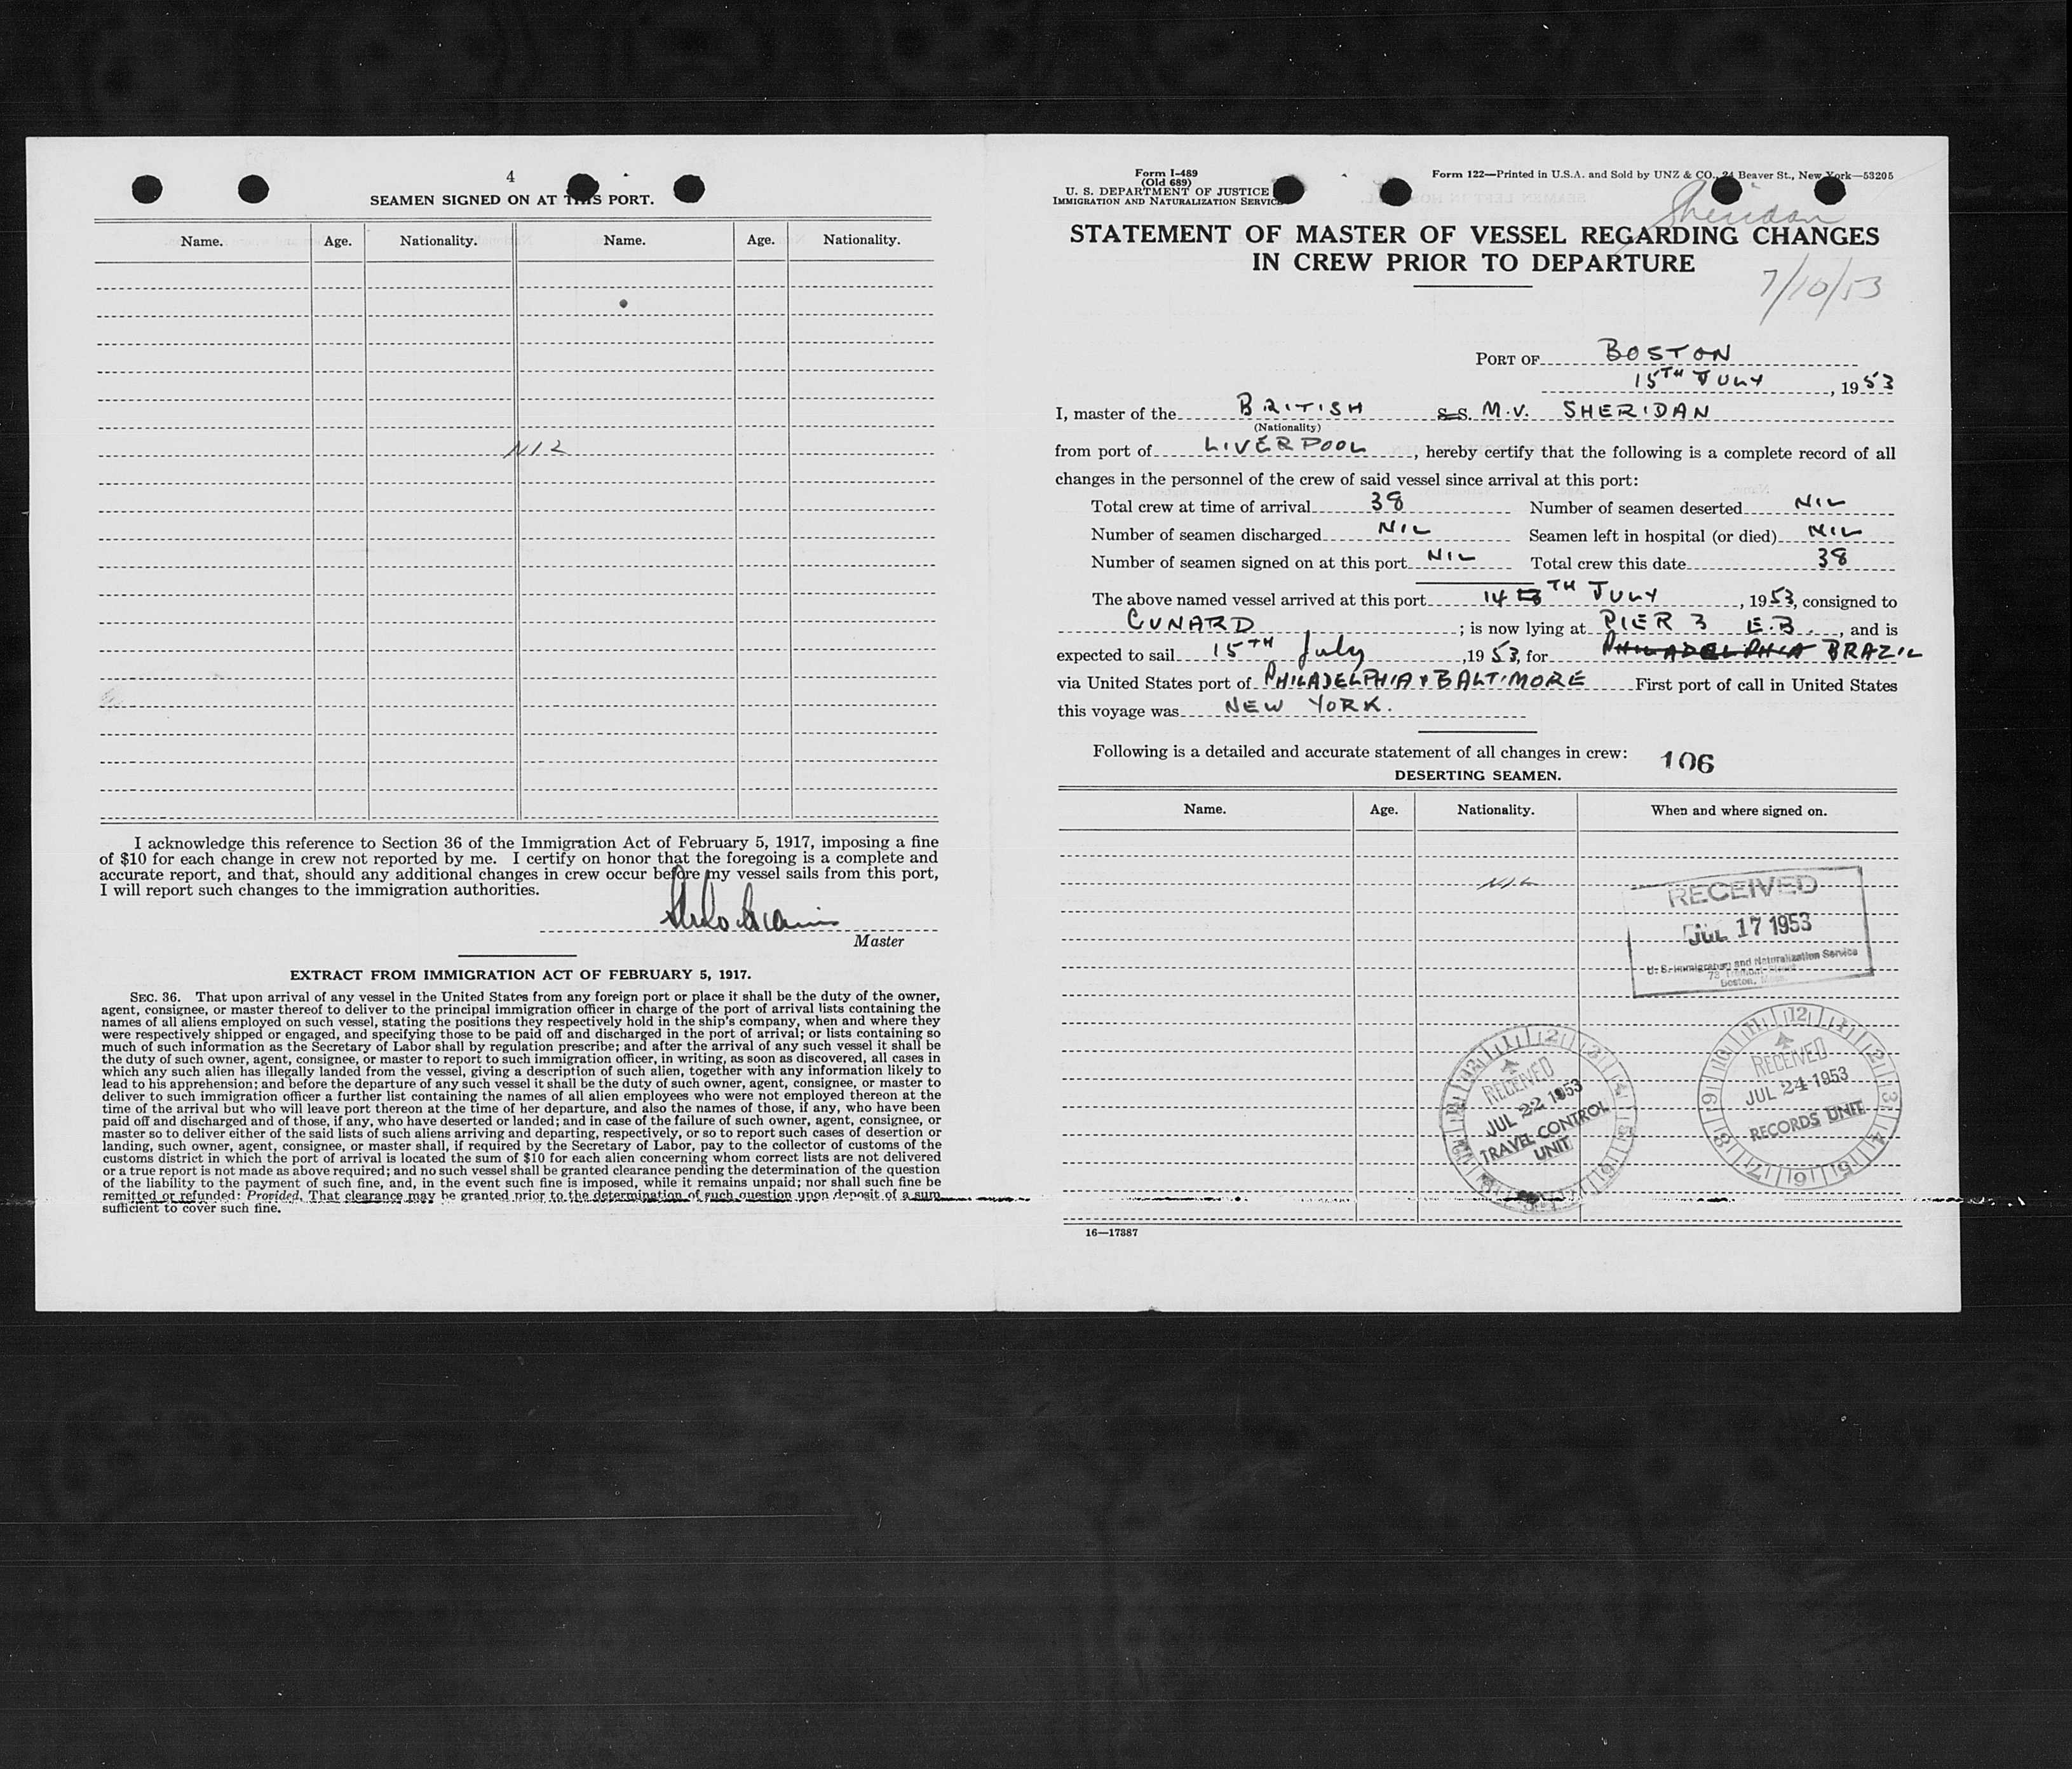 4
SEAMEN SIGNED ON AT THIS PORT.
Name. Age. Nationality. Name. Age. Nationality.
NIL
I acknowledge this reference to Section 36 of the Immigration Act of February 5, 1917, imposing a fine
of $10 for each change in crew not reported by me. I certify on honor that the foregoing is a complete and
accurate report, and that, should any additional changes in crew occur before my vessel sails from this port,
I will report such changes to the immigration authorities.
Master
EXTRACT FROM IMMIGRATION ACT OF FEBRUARY 5, 1917.
SEC. 36. That upon arrival of any vessel in the United States from any foreign port or place it shall be the duty of the owner,
agent, consignee, or master thereof to deliver to the principal immigration officer in charge of the port of arrival lists containing the
names of all aliens employed on such vessel, stating the positions they respectively hold in the ship's company, when and where they
were respectively shipped or engaged, and specifying those to be paid off and discharged in the port of arrival; or lists containing so
much of such information as the Secretary of Labor shall by regulation prescribe; and after the arrival of any such vessel it shall be
the duty of such owner, agent, consignee, or master to report to such immigration officer, in writing, as soon as discovered, all cases in
which any such alien has illegally landed from the vessel, giving a description of such alien, together with any information likely to
lead to his apprehension; and before the departure of any such vessel it shall be the duty of such owner, agent, consignee, or master to
deliver to such immigration officer a further list containing the names of all alien employees who were not employed thereon at the
time of the arrival but who will leave port thereon at the time of her departure, and also the names of those, if any, who have been
paid off and discharged and of those, if any, who have deserted or landed; and in case of the failure of such owner, agent, consignee, or
master so to deliver either of the said lists of such aliens arriving and departing, respectively, or so to report such cases of desertion or
landing, such owner, agent, consignee, or master shall, if required by the Secretary of Labor, pay to the collector of customs of the
customs district in which the port of arrival is located the sum of $10 for each alien concerning whom correct lists are not delivered
or a true report is not made as above required; and no such vessel shall be granted clearance pending the determination of the question
of the liability to the payment of such fine, and, in the event such fine is imposed, while it remains unpaid; nor shall such fine be
remitted or refunded: Provided, That clearance may be granted prior to the determination of such question upon deposit of a sum
sufficient to cover such fine.
Form I-489
(Old 689)
U. S. DEPARTMENT OF JUSTICE
IMMIGRATION AND NATURALIZATION SERVICE
Form 122—Printed in U.S.A. and Sold by UNZ & CO., 24 Beaver St., New York—53205
Sheridan
STATEMENT OF MASTER OF VESSEL REGARDING CHANGES
IN CREW PRIOR TO DEPARTURE
7/10/53
PORT OF BOSTON
15TH JULY, 1953
I, master of the BRITISH S.S. M.V. SHERIDAN
(Nationality)
from port of LIVERPOOL, hereby certify that the following is a complete record of all
changes in the personnel of the crew of said vessel since arrival at this port:
Total crew at time of arrival 38 Number of seamen deserted NIL
Number of seamen discharged NIL Seamen left in hospital (or died) NIL
Number of seamen signed on at this port NIL Total crew this date 38
The above named vessel arrived at this port 14 TH JULY, 1953, consigned to
CUNARD; is now lying at PIER 3 E.B., and is
expected to sail 15TH July, 1953, for PHILADELPHIA BRAZIL
via United States port of PHILADELPHIA & BALTIMORE First port of call in United States
this voyage was NEW YORK.
Following is a detailed and accurate statement of all changes in crew: 106
DESERTING SEAMEN.
Name. Age. Nationality. When and where signed on.
NIL
RECEIVED
JUL 17 1953
U. S. Immigration and Naturalization Service
Boston,
RECEIVED
JUL 22 1953
TRAVEL CONTROL
UNIT
RECEIVED
JUL 24 1953
RECORDS UNIT
16—17387